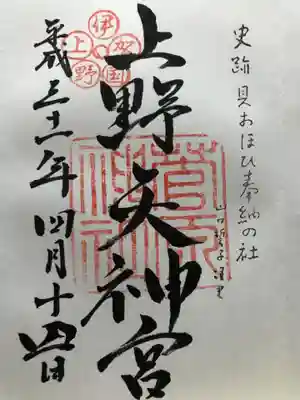 史跡 貝おほひ奉納の社
上野天神宮
平成三十一年四月十四日
伊賀国上野
菅原神社